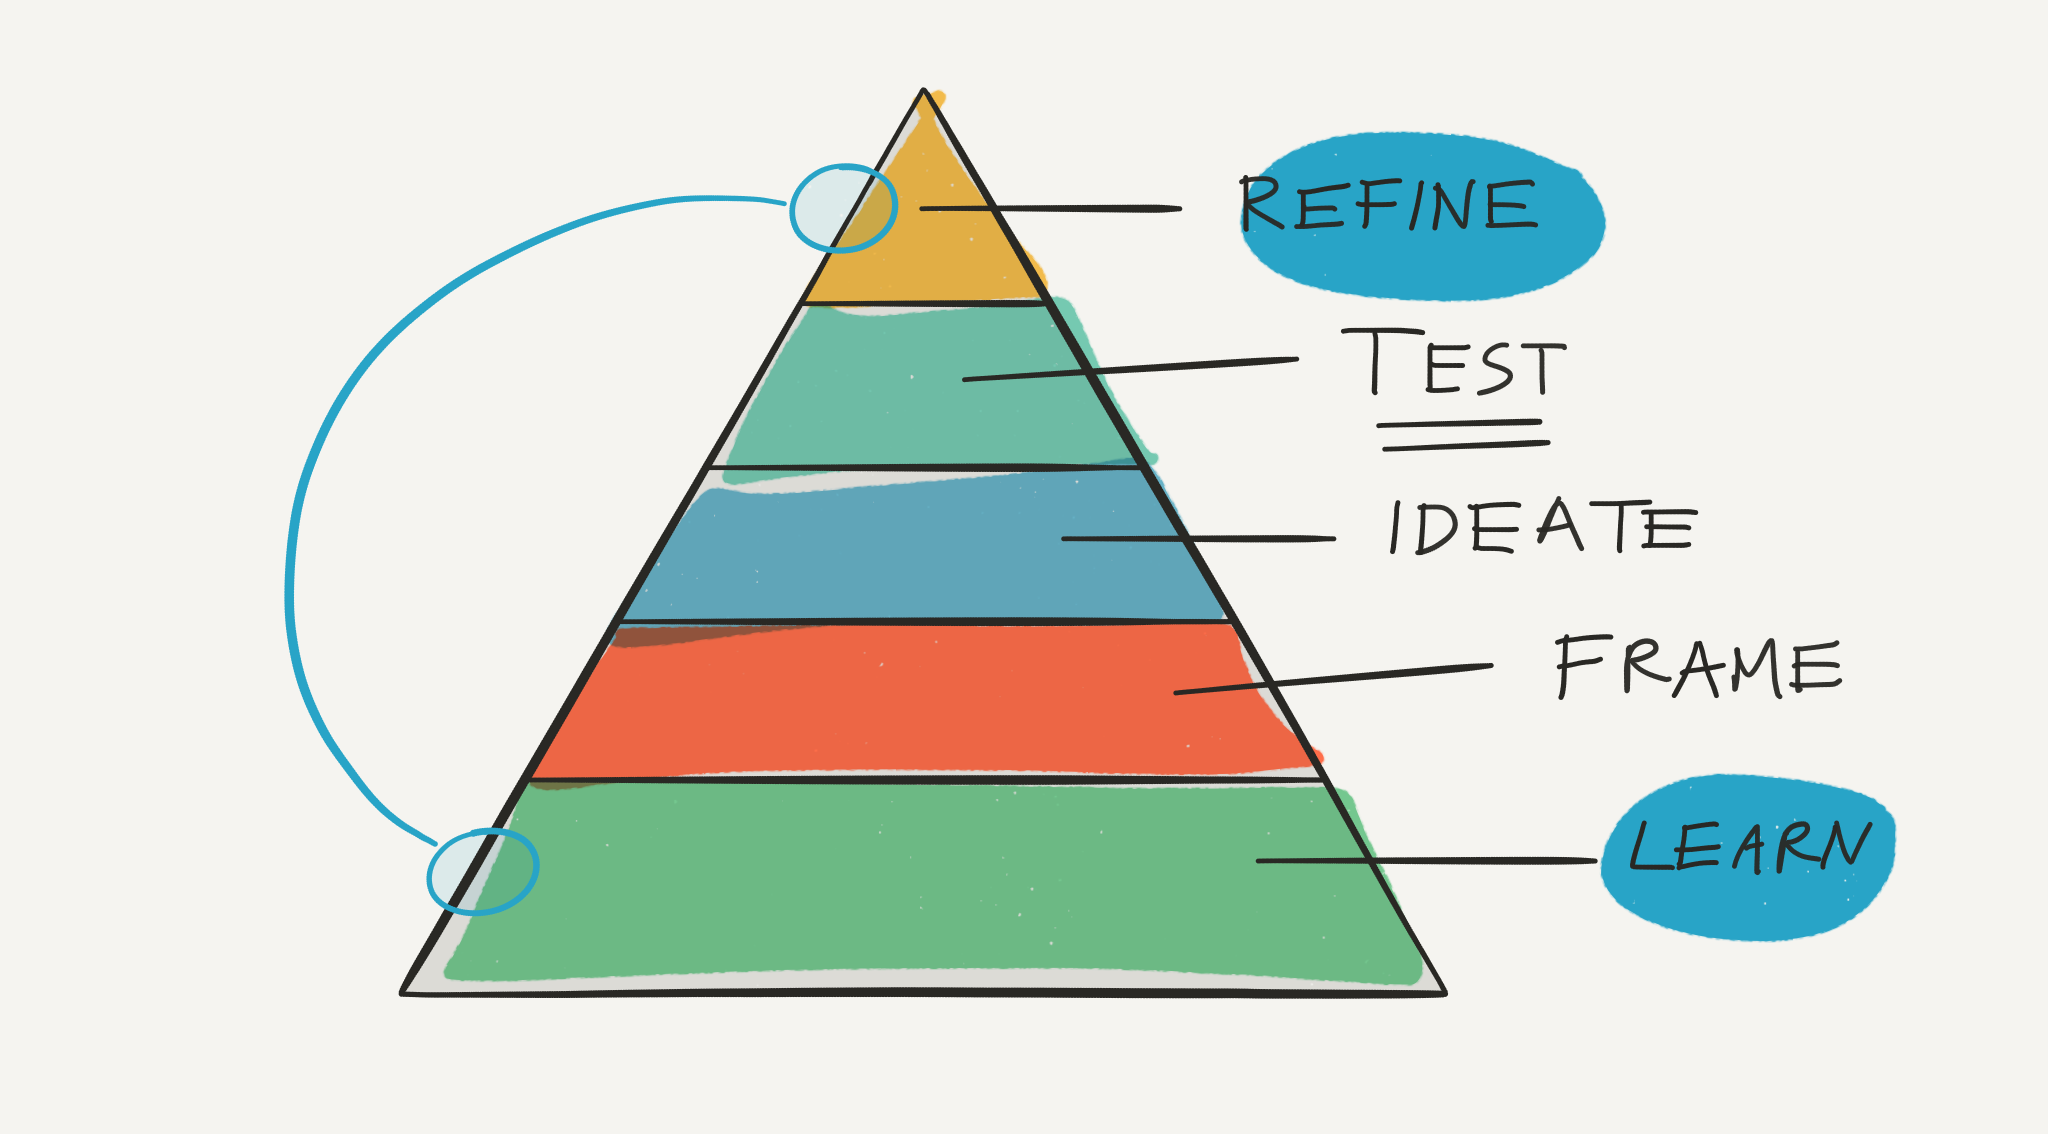 REFINE
TEST
IDEATE
FRAME
LEARN